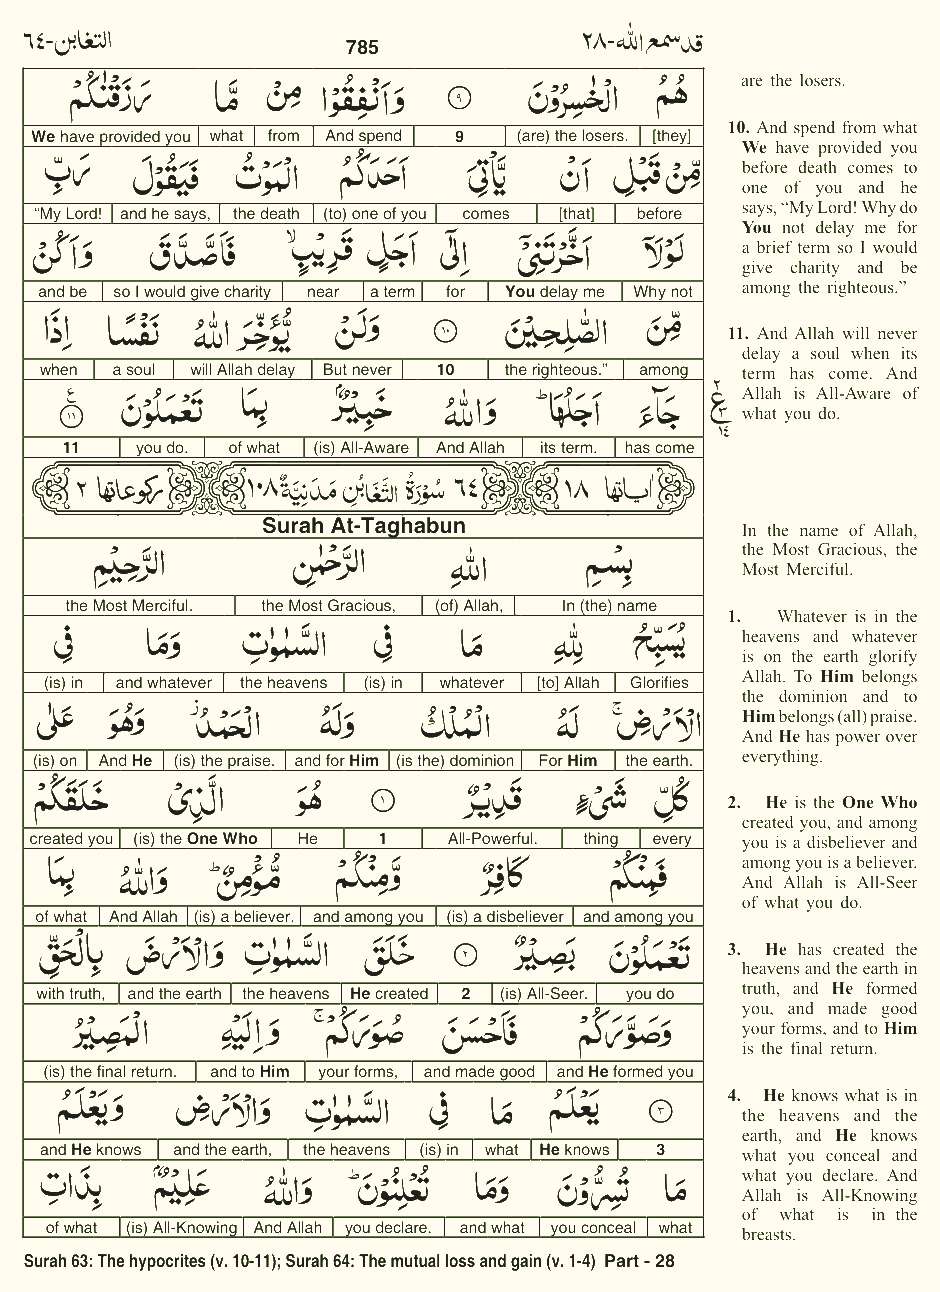 التغابن-٦٤ 785 قد سمع الله-٢٨
هُمُ الْخٰسِرُوْنَ ۹ وَاَنْفِقُوْا مِنْ مَّا رَزَقْنٰكُمْ
[they] (are) the losers. 9 And spend from what We have provided you
مِّنْ قَبْلِ اَنْ يَّاْتِيَ اَحَدَكُمُ الْمَوْتُ فَيَقُوْلَ رَبِّ
before [that] comes (to) one of you the death and he says, “My Lord!
لَوْلَاۤ اَخَّرْتَنِيْۤ اِلٰٓى اَجَلٍ قَرِيْبٍ ۙ فَاَصَّدَّقَ وَاَكُنْ
Why not You delay me for a term near so I would give charity and be
مِّنَ الصّٰلِحِيْنَ ۱۰ وَلَنْ يُّؤَخِّرَ اللّٰهُ نَفْسًا اِذَا
among the righteous.” 10 But never will Allah delay a soul when
جَآءَ اَجَلُهَا ؕ وَاللّٰهُ خَبِيْرٌۢ بِمَا تَعْمَلُوْنَ ۱۱ ع
has come its term. And Allah (is) All-Aware of what you do. 11
٢ ع ٣ ١٤
اٰیاتها ١٨ ٦٤ سُوْرَةُ التَّغَابُنِ مَدَنِيَّةٌ ١٠٨ رکوعاتها ٢
Surah At-Taghabun
بِسْمِ اللّٰهِ الرَّحْمٰنِ الرَّحِيْمِ
In (the) name (of) Allah, the Most Gracious, the Most Merciful.
يُسَبِّحُ لِلّٰهِ مَا فِي السَّمٰوٰتِ وَمَا فِي
Glorifies [to] Allah whatever (is) in the heavens and whatever (is) in
الْاَرْضِ ۚ لَهُ الْمُلْكُ وَلَهُ الْحَمْدُ ؗ وَهُوَ عَلٰى
the earth. For Him (is the) dominion and for Him (is) the praise. And He (is) on
كُلِّ شَيْءٍ قَدِيْرٌ ۱ هُوَ الَّذِيْ خَلَقَكُمْ
every thing All-Powerful. 1 He (is) the One Who created you
فَمِنْكُمْ كَافِرٌ وَّمِنْكُمْ مُّؤْمِنٌ ؕ وَاللّٰهُ بِمَا
and among you (is) a disbeliever and among you (is) a believer. And Allah of what
تَعْمَلُوْنَ بَصِيْرٌ ۲ خَلَقَ السَّمٰوٰتِ وَالْاَرْضَ بِالْحَقِّ
you do (is) All-Seer. 2 He created the heavens and the earth with truth,
وَصَوَّرَكُمْ فَاَحْسَنَ صُوَرَكُمْ ۚ وَاِلَيْهِ الْمَصِيْرُ
and He formed you and made good your forms, and to Him (is) the final return.
۳ يَعْلَمُ مَا فِي السَّمٰوٰتِ وَالْاَرْضِ وَيَعْلَمُ
3 He knows what (is) in the heavens and the earth, and He knows
مَا تُسِرُّوْنَ وَمَا تُعْلِنُوْنَ ؕ وَاللّٰهُ عَلِيْمٌۢ بِذَاتِ
what you conceal and what you declare. And Allah (is) All-Knowing of what
are the losers.
10. And spend from what
We have provided you
before death comes to
one of you and he
says, “My Lord! Why do
You not delay me for
a brief term so I would
give charity and be
among the righteous.”
11. And Allah will never
delay a soul when its
term has come. And
Allah is All-Aware of
what you do.
In the name of Allah,
the Most Gracious, the
Most Merciful.
1. Whatever is in the
heavens and whatever
is on the earth glorify
Allah. To Him belongs
the dominion and to
Him belongs (all) praise.
And He has power over
everything.
2. He is the One Who
created you, and among
you is a disbeliever and
among you is a believer.
And Allah is All-Seer
of what you do.
3. He has created the
heavens and the earth in
truth, and He formed
you, and made good
your forms, and to Him
is the final return.
4. He knows what is in
the heavens and the
earth, and He knows
what you conceal and
what you declare. And
Allah is All-Knowing
of what is in the
breasts.
Surah 63: The hypocrites (v. 10-11); Surah 64: The mutual loss and gain (v. 1-4) Part - 28